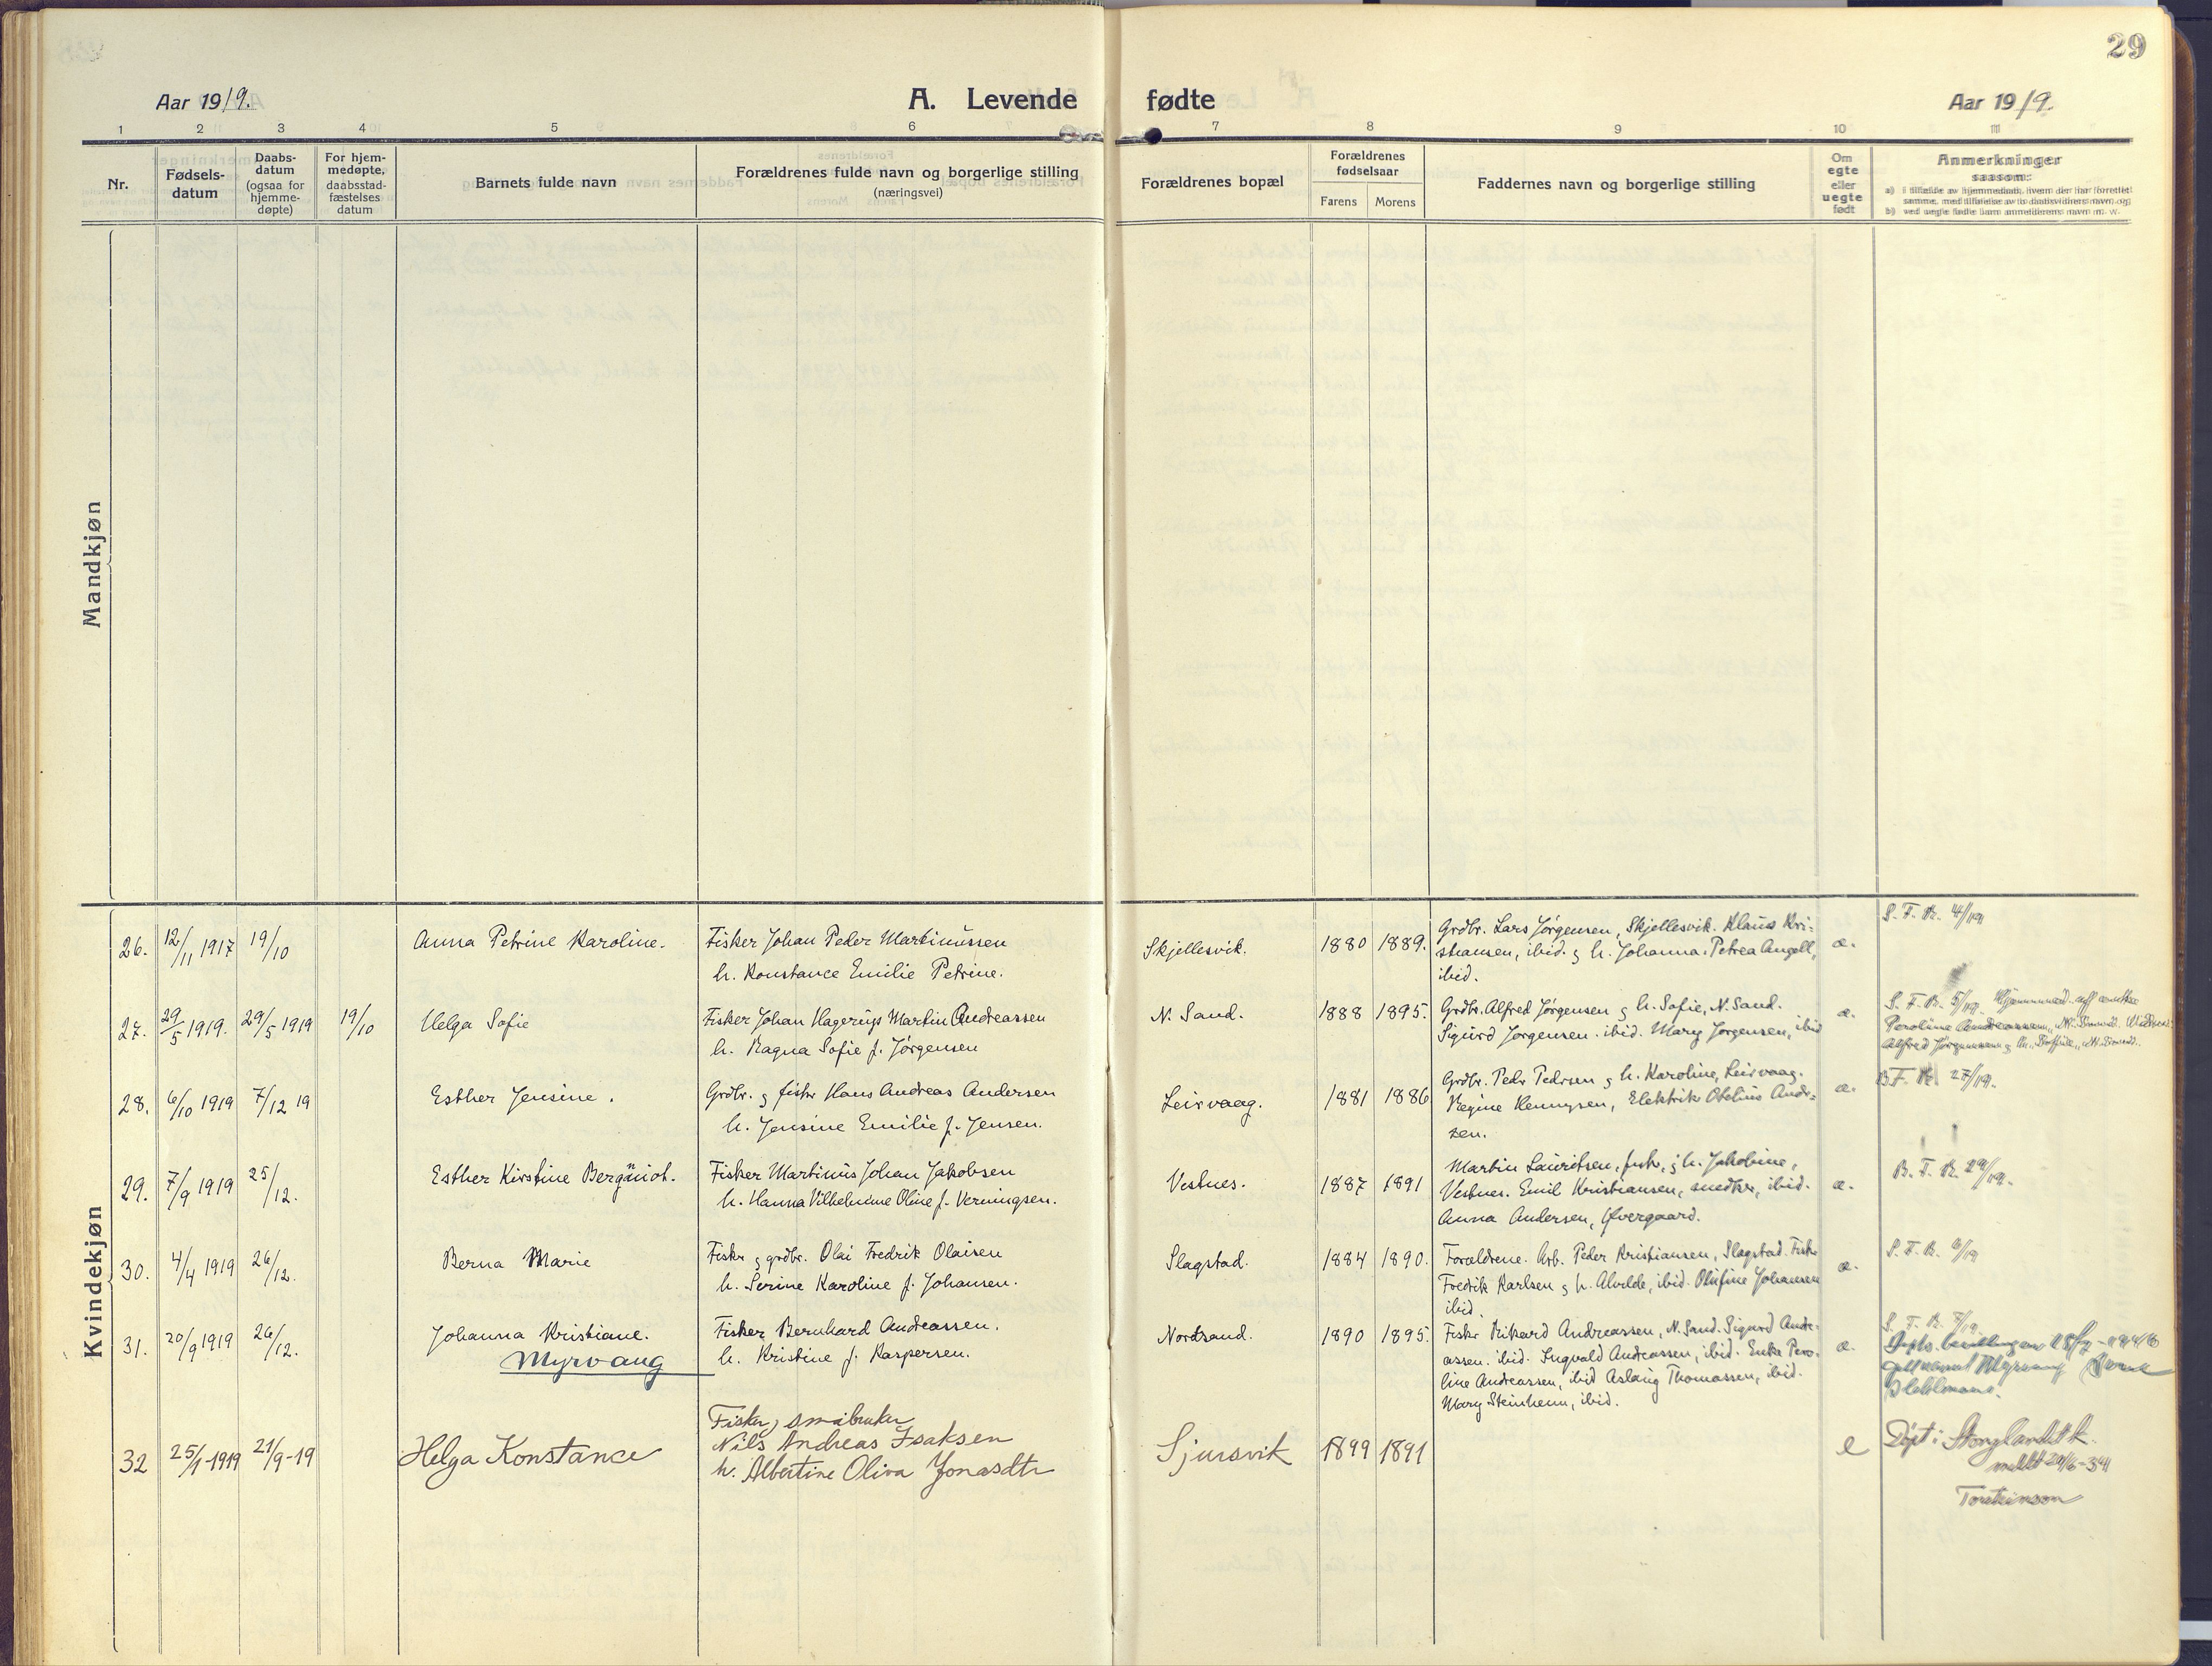 29
Aar 1919.
A. Levende fødte
Aar 1919.
1 2 3 4 5 6 7 8 9 10 11
Nr.
Fødsels-
datum
Daabs-
datum
(ogsaa for
hjemme-
døpte)
For hjem-
medøpte,
daabsstad-
fæstelses
datum
Barnets fulde navn
Forældrenes fulde navn og borgerlige stilling
(næringsvei)
Forældrenes bopæl
Forældrenes
fødselsaar
Farens Morens
Faddernes navn og borgerlige stilling
Om
egte
eller
uegte
født
Anmerkninger
saasom:
a) i tilfælde av hjemmedaab, hvem der har forrettet
samme, med tilføielse av to daabsvidners navn, og
b) ved uegte fødte barn anmelderens navn m. v.
Mandkjøn
Kvindekjøn
26. 12/11 1917 19/10 Anna Petrine Karoline. Fisker Johan Peder Martinussen
h. Konstance Emilie Petrine.
Skjellesvik. 1880 1889.
Grdbr. Lars Jørgensen, Skjellesvik. Klaus Kri-
stiansen, ibid. g h. Johanna. Petrea Angell,
ibid.
æ. S. F. R. 4/19
27. 29/5 1919. 29/5 1919 19/10 Helga Sofie Fisker Johan Hagerups Martin Andreassen
h. Ragna Sofie f. Jørgensen
N. Sand. 1888 1895.
Grdbr. Alfred Jørgensen g h. Sofie, N. Sand.
Sigurd Jørgensen. ibid. Mary Jørgensen, ibid
æ. S. F. R. 5/19. Hjemmed. af enke
Peroline Andreassen, N. Sand.
Alfred Jørgensen g h. Sofie, N. Sand.
28. 6/10 1919 7/12 19 Esther Jensine. Grdbr. g fisker Hans Andreas Andersen
h. Jensine Emilie f. Jensen.
Leirvaag. 1881 1886
Grdbr. Pedr Pedrsen g h. Karoline, Leirvaag.
Regine Henningsen, Elektrik Obelius Andr-
sen.
æ. B. F. R. 27/19.
29. 7/9 1919 25/12. Esther Kirstine Bergäniot. Fisker Martinus Johan Jakobsen
h. Hanna Vilhelmine Oline f. Verningsen.
Vestnes. 1887 1891
Martin Lauritsen, fisk, g h. Jakobine,
Vestnes. Emil Kristiansen, snedker, ibid.
Anna Andersen, Øvergaard.
æ. B. F. R. 29/19.
30. 4/4 1919 26/12. Berna Marie Fiskr g grdbr. Olai Fredrik Olaisen
h. Serine Karoline f. Johansen.
Slagstad. 1884 1890.
Forældrene. Arb. Peder Kristiansen, Slagstad. Fiskr
Fredrik Karlsen g h. Alvilde, ibid. Olufine Johansen
ibid.
æ. S. F. R. 6/19
31. 20/9 1919 26/12. Johanna Kristiane. Fisker Bernhard Andreassen.
Myrvang
h. Kristine f. Kaspersen.
Nordsand. 1890 1895.
Fiskr Rikard Andreassen, N. Sand. Sigurd Andr-
eassen. ibid. Ingvald Andreassen, ibid. Enke Pero-
line Andreassen, ibid Aslaug Thomassen, ibid.
Mary Steinheim, ibid.
æ. S. F. R. 7/19
32 25/1-1919 21/9-19 Helga Konstance Fisker, småbruker
Nils Andreas Isaksen
h. Albertine Oliva Jonasdtr
Sjursvik 1899 1891
e Døpt i Stonglandet k.
meldt 29/6-34
Torsteinson